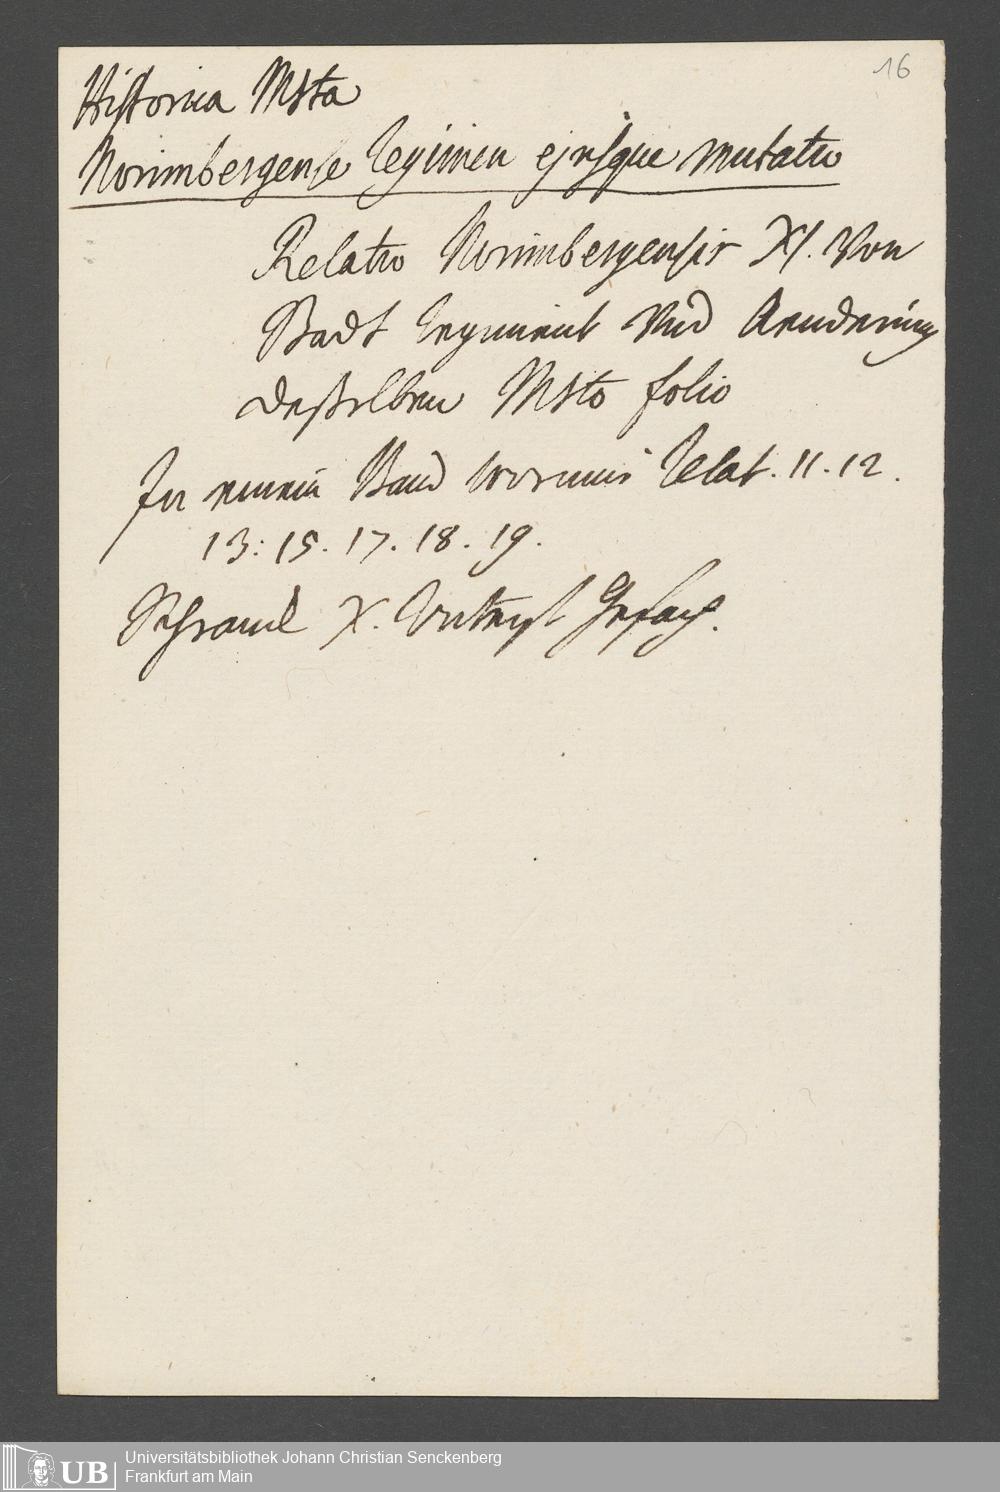 16
Historica Msta
Norimbergense Regimen ejusque mutatio
Relatio Norimbergensis XI. Von
Stadt Regiment Und Aenderung
deßelben Msto folio
In einem Band worinnen Relat. 11. 12.
13: 15. 17. 18. 19.
Schranck X. Unterst Gefach.
UB
Universitätsbibliothek Johann Christian Senckenberg
Frankfurt am Main